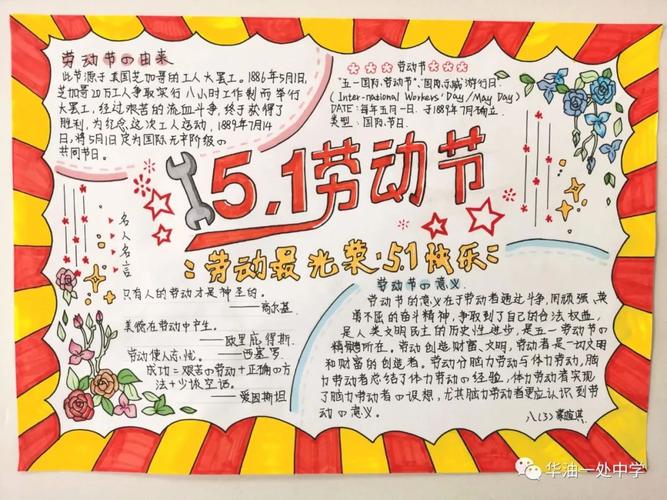 劳动节の由来
此节源于美国芝加哥的工人大罢工。1886年5月1日,
芝加哥20万工人争取实行八小时工作制而举行
大罢工,经过艰苦的流血斗争,终于获得了
胜利,为纪念这次工人运动,1889年7月14
日,将5月1日定为国际无产阶级の
共同节日。
劳动节
"五一国际劳动节"、国际示威游行日.
(Inter-national Workers' Day/May Day)
DATE:每年五月一日.于1889年7月确立.
类型:国际节日.
5.1劳动节
劳动最光荣·5.1快乐
名人名言
只有人的劳动才是神圣的.
——高尔基.
美德在劳动中产生.
——欧里庇得斯.
劳动使人忘忧. ——西塞罗.
成功=艰苦的劳动+正确的方
法+少谈空话.
——爱因斯坦
劳动节の意义
劳动节的意义在于劳动者通过斗争,用顽强、英
勇不屈的奋斗精神,争取到了自己的合法权益,
是人类文明民主的历史性进步,是五一劳动节の
精髓所在。劳动创造财富、文明,劳动者是一切文明
和财富的创造者。劳动分脑力劳动与体力劳动,脑
力劳动者总结了体力劳动の经验,体力劳动者实现
了脑力劳动者の设想,尤其脑力劳动者更应认识到劳
动の意义。
八(3)
华油一处中学